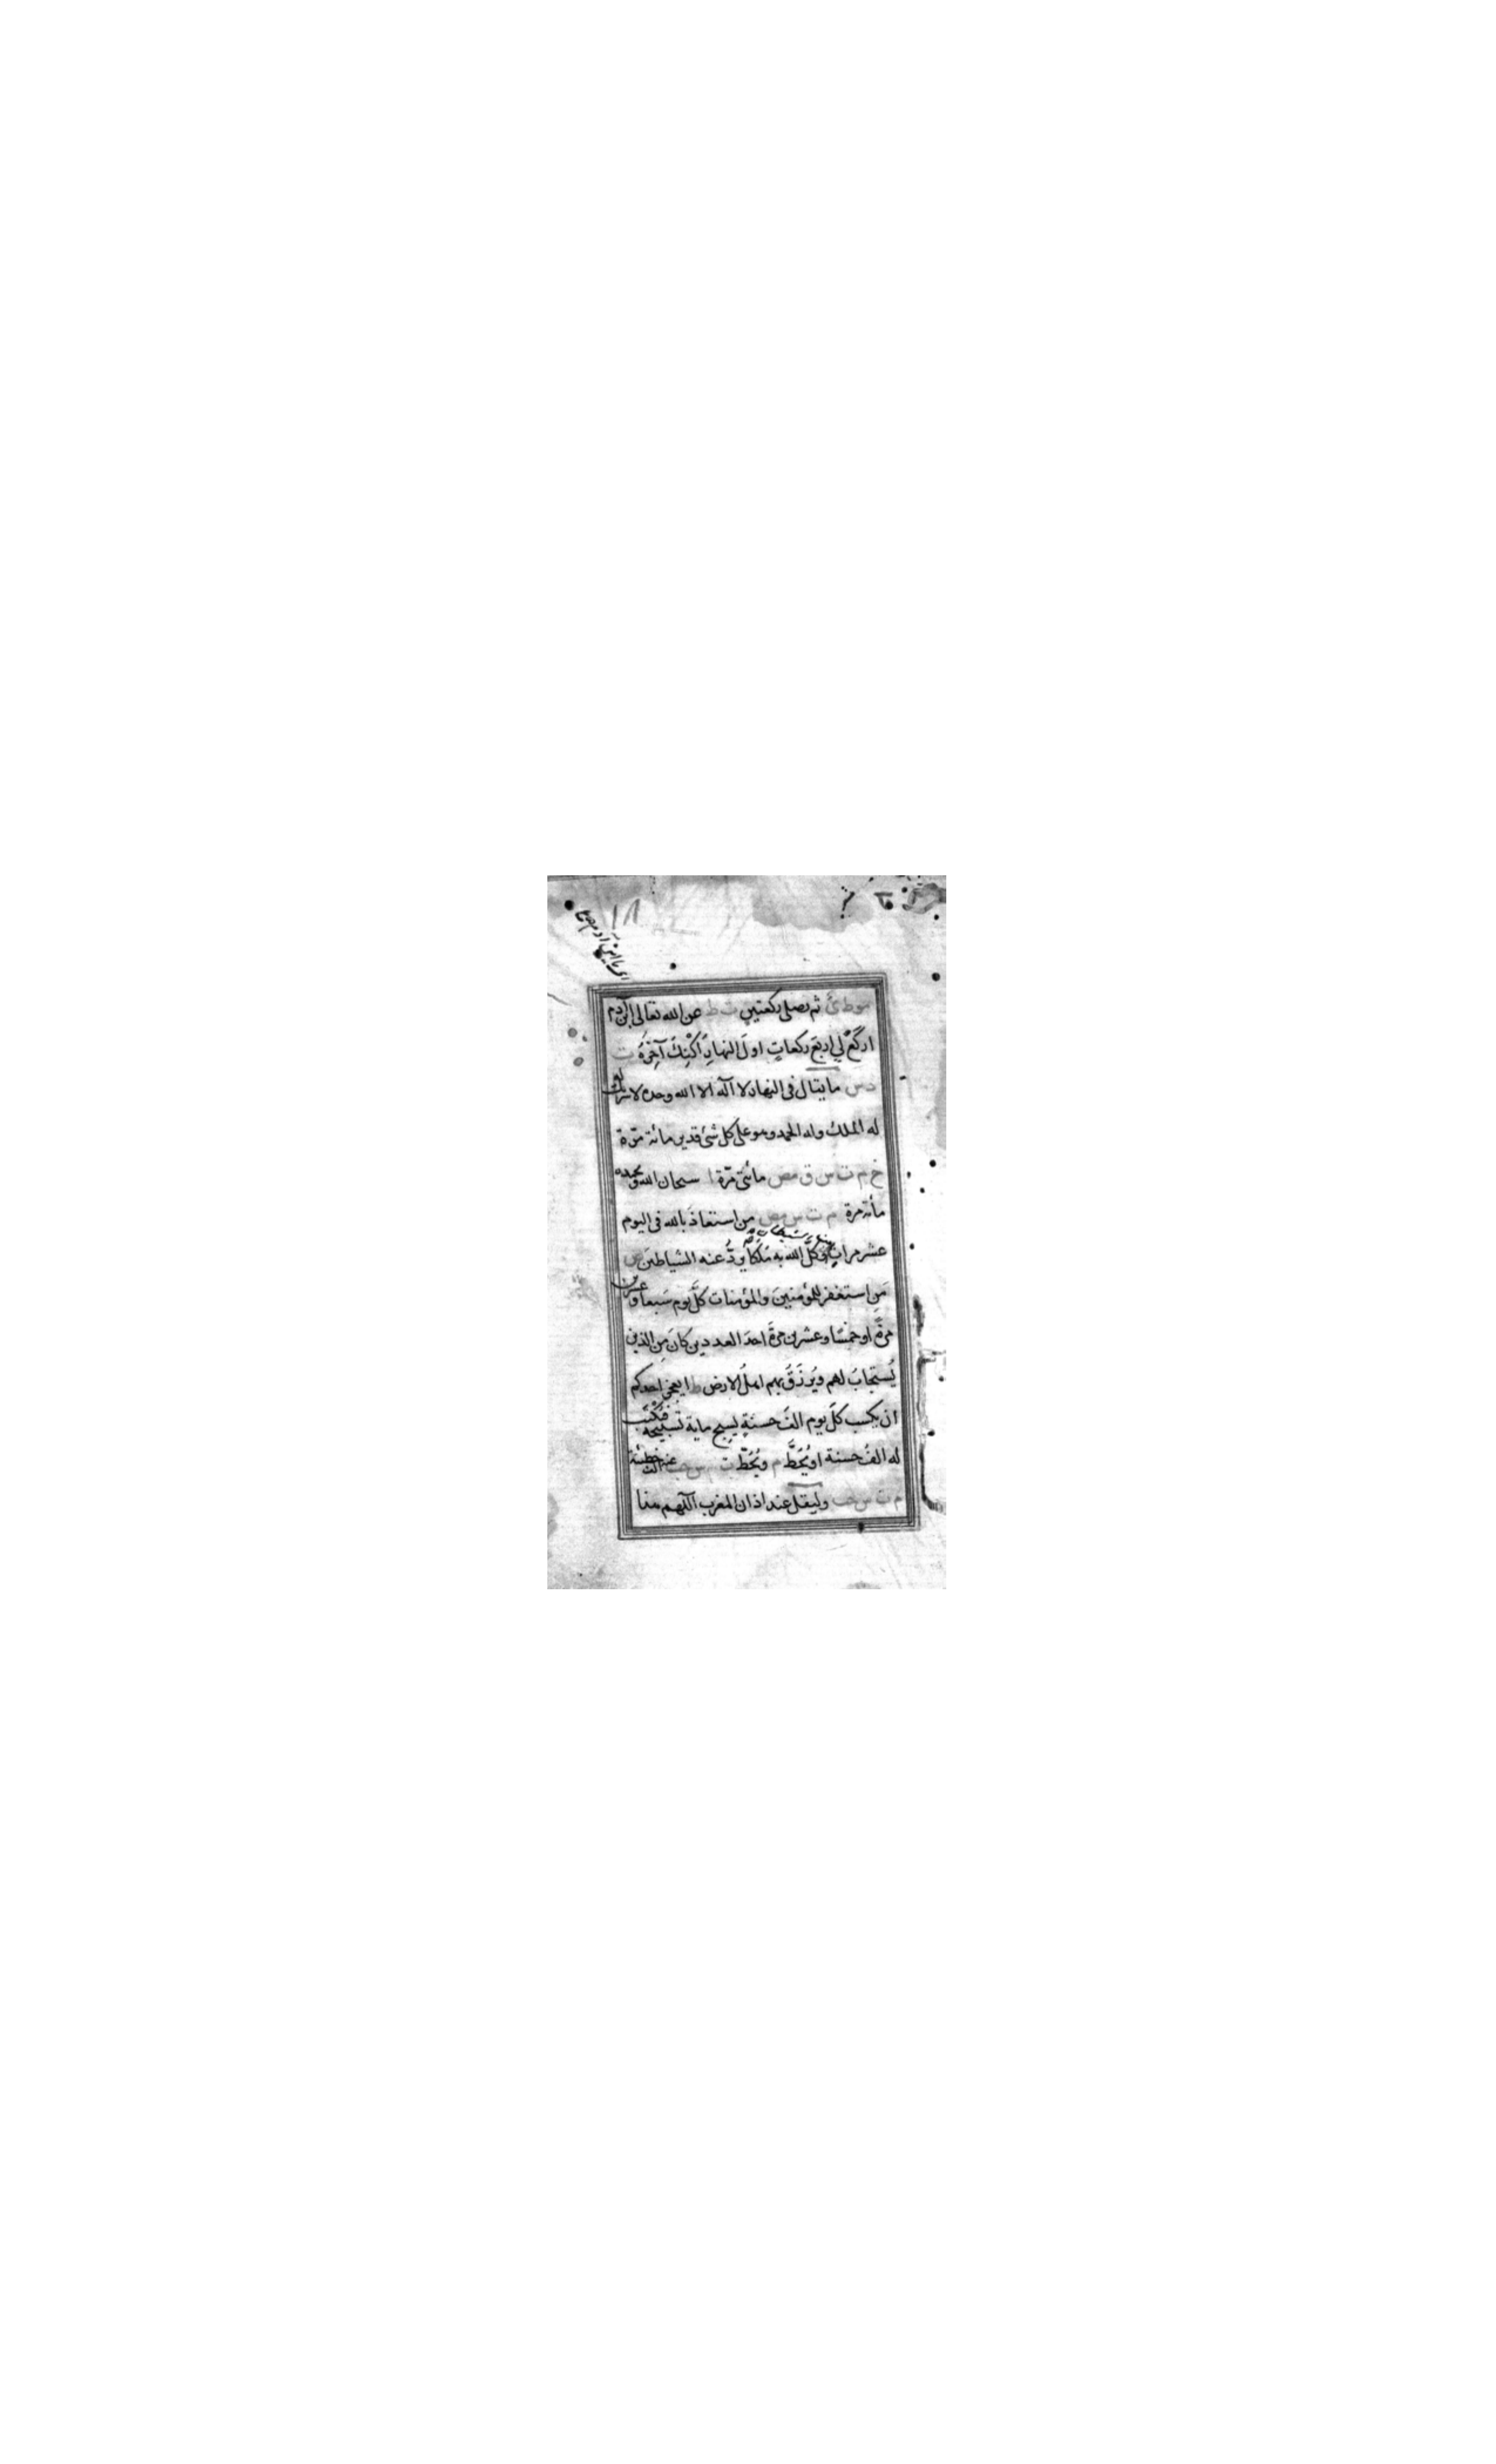 ١٨
اى يا ابن آدم صح
موطئ ثم يصلى ركعتين ت ط عن الله تعالى ابن آدم
اركَعْ لي اربعَ ركعاتٍ اولَ النهارِ اَكْفِكَ آخرَهُ ت
د س ما يقال فى النهار لا اله الا الله وحده لا شريك له
له الملك وله الحمد وهو على كل شئ قدير مائة مرّة
خ م ت س ق مص مائتى مرّة ا سبحان الله وبحمده
مائة مرة م ت س مص من استعاذَ بالله فى اليوم
عشر مراتٍ وكّلَ الله به مَلَكًا يردُّ عنه الشياطينَ ص
مَنِ استغفر للمؤمنينَ والمؤمنات كلَّ يوم سَبعا وعشرين
مرةً او خمسًا وعشرين مرةً احدَ العددين كانَ مِن الذين
يُستجابُ لهم ويُرزَقُ بهم اهلُ الارض ط ايعجز احدكم
ان يكسب كلَّ يوم الفَ حسنةٍ يسبح ماية تسبيحة فتُكْتَب
له الفُ حسنة او يُحَطُّ م ويُحَطُّ ت س حب عنه الف خطيئة
م ت س حب وليقل عند اذان المغرب اللهم هذا